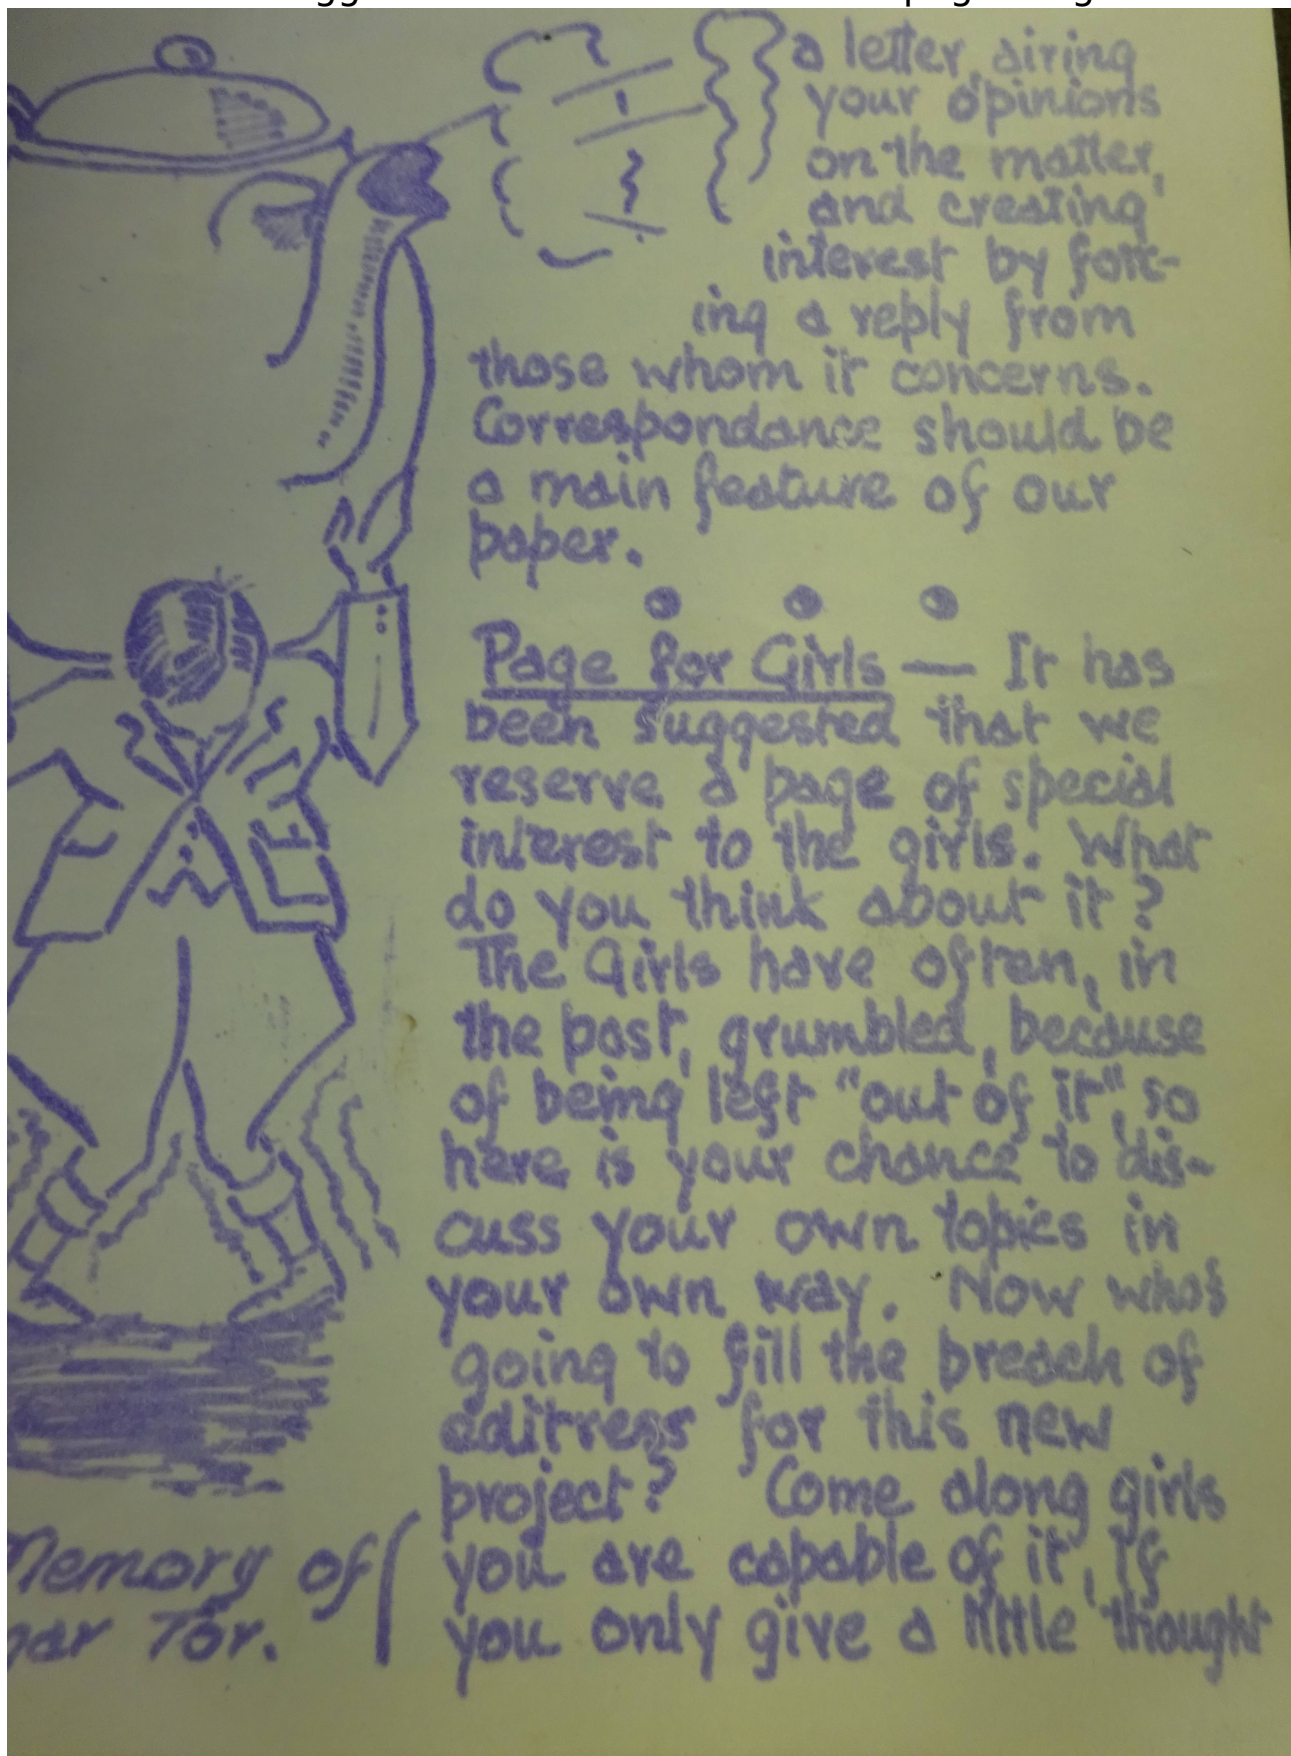 a letter, airing
your opinions
on the matter,
and creating
interest by forc-
ing a reply from
those whom it concerns.
Correspondance should be
a main feature of our
paper.
Page for Girls — It has
been suggested that we
reserve a page of special
interest to the girls. What
do you think about it?
The Girls have often, in
the past, grumbled, because
of being left "out of it", so
here is your chance to dis-
cuss your own topics in
your own way. Now whos
going to fill the breach of
editress for this new
project? Come along girls
you are capable of it, if
you only give a little thought
Memory of
Tor.